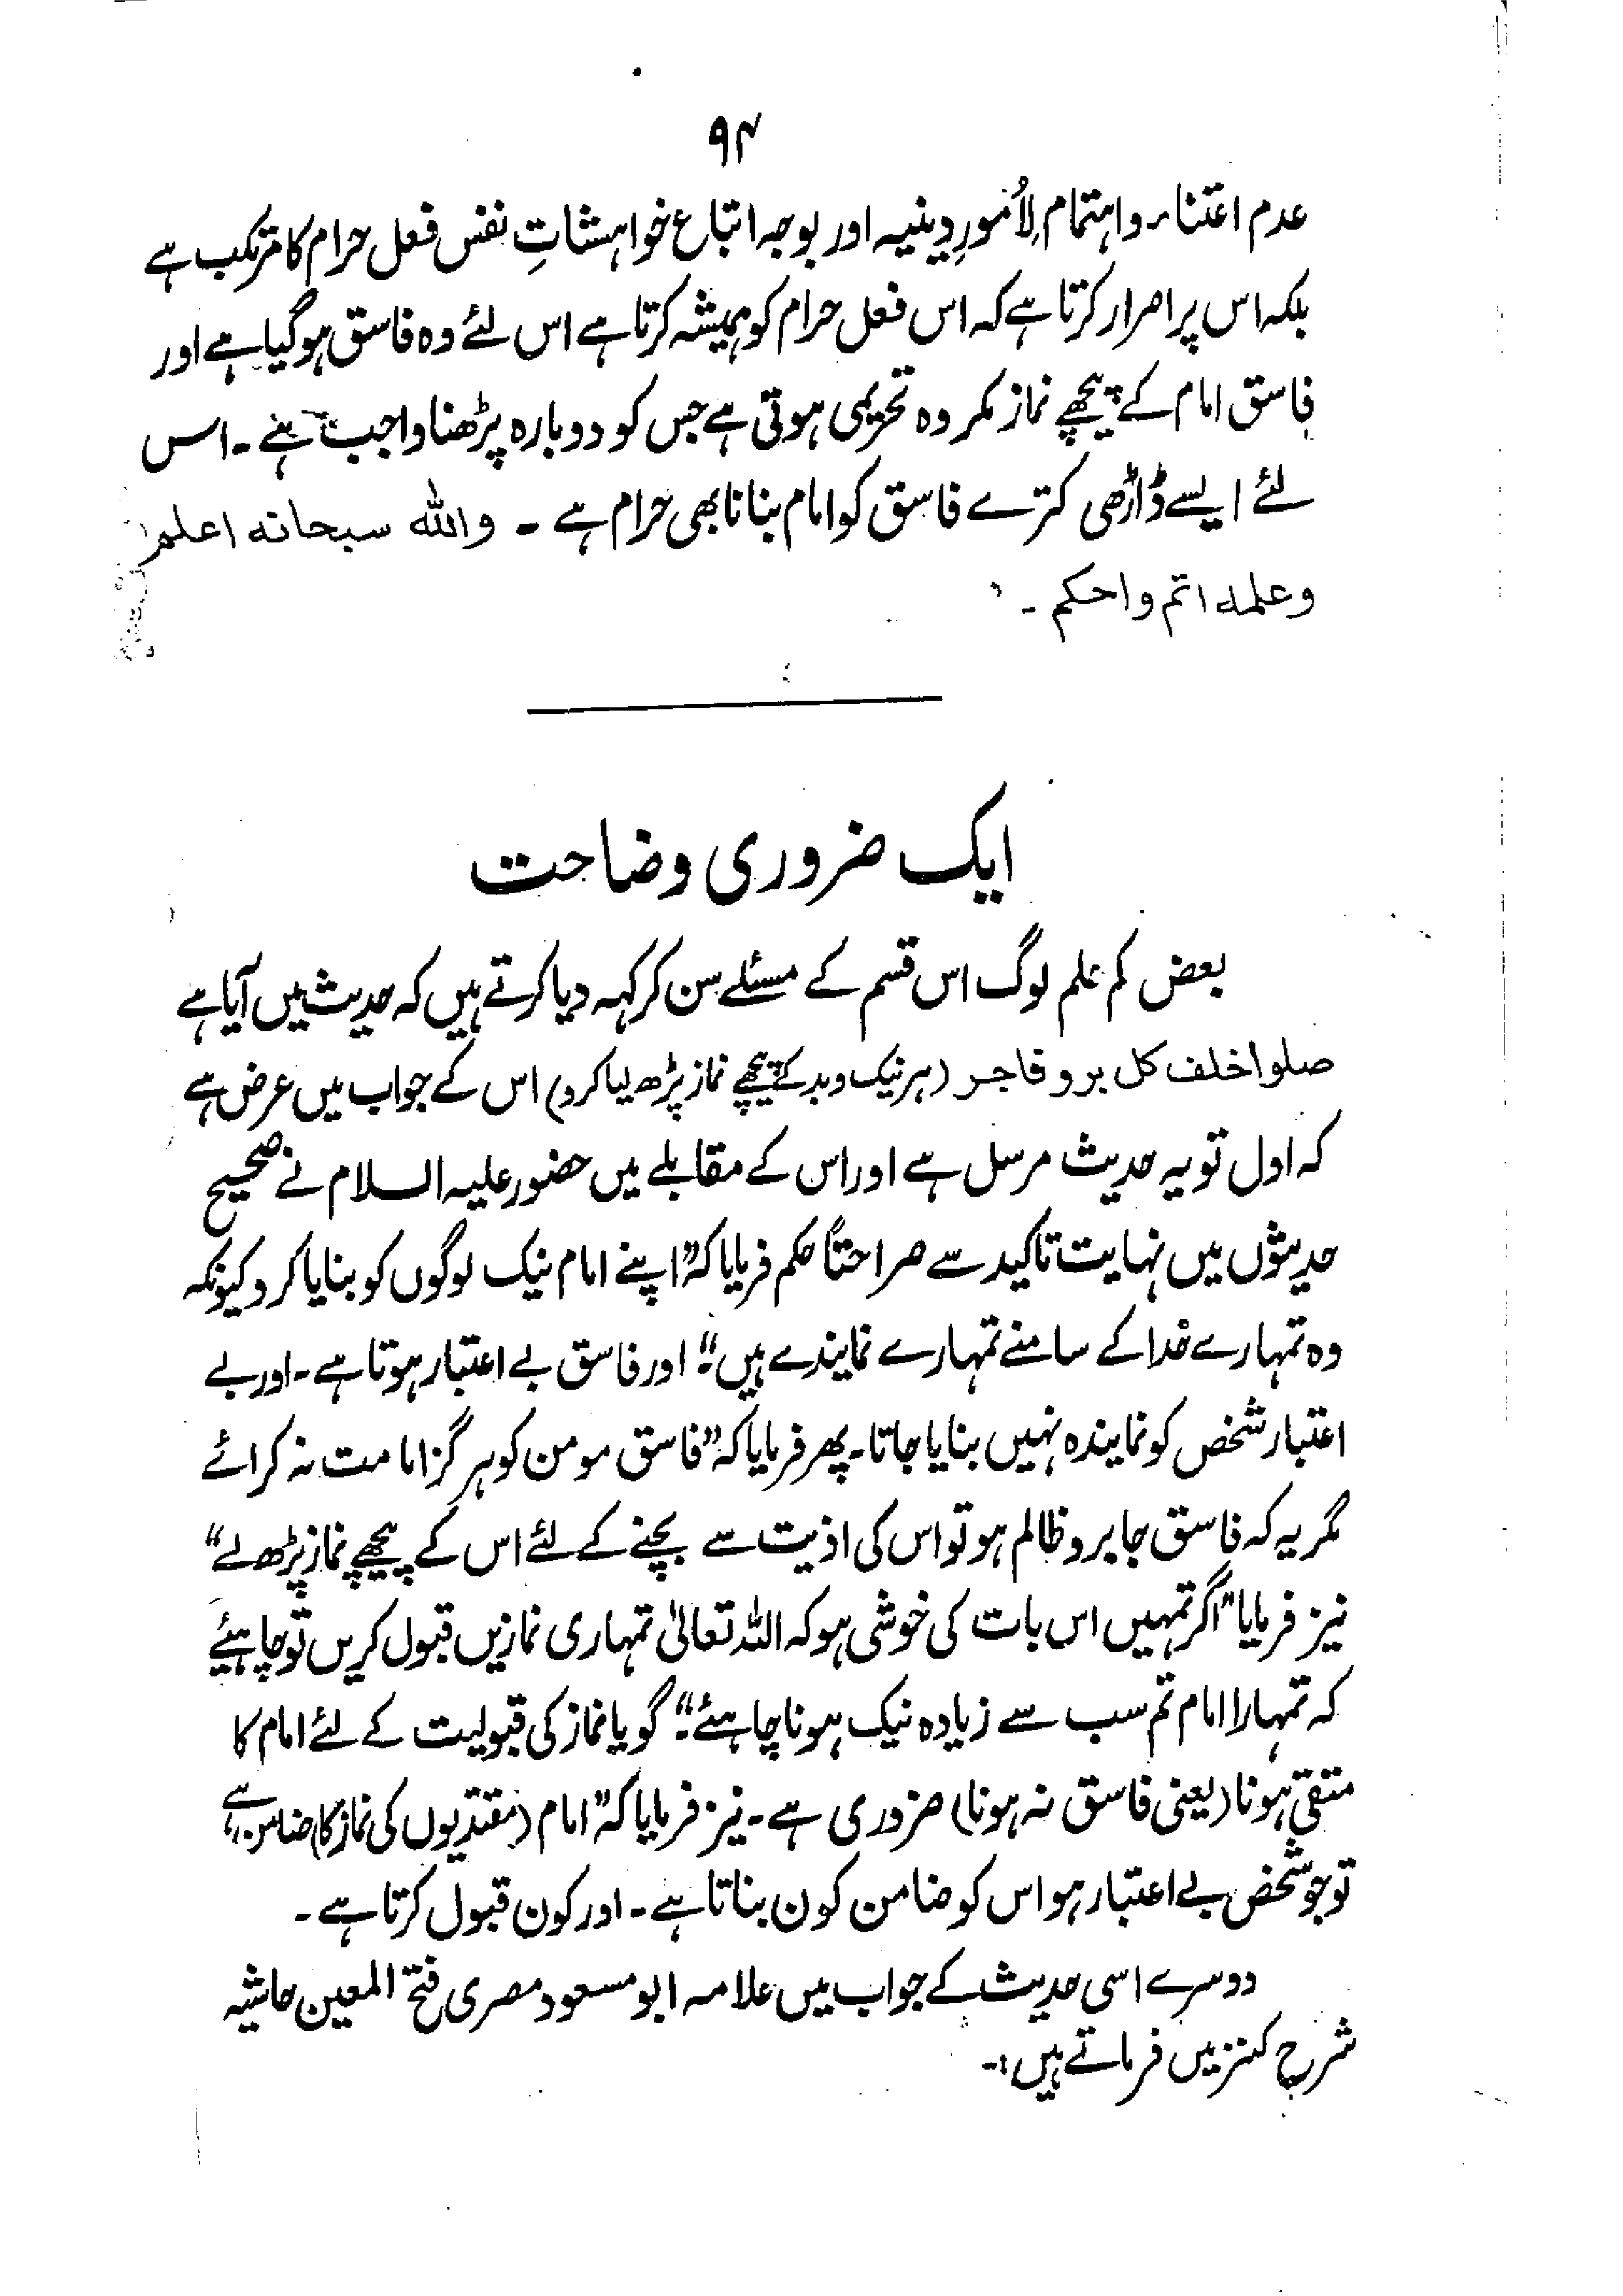 ۹۴
عدم اعتناء واہتمام لِأمورِ دینیہ اور بوجہ اتباع خواہشاتِ نفس فعل حرام کا مرتکب ہے
بلکہ اس پر اصرار کرتا ہے کہ اس فعل حرام کو ہمیشہ کرتا ہے اس لئے وہ فاسق ہوگیا ہے اور
فاسق امام کے پیچھے نماز مکروہ تحریمی ہوتی ہے جس کو دوبارہ پڑھنا واجب ہے۔ اس
لئے ایسے ڈاڑھی کترے فاسق کو امام بنانا بھی حرام ہے ۔ والله سبحانه اعلم
وعلمه اتم واحكم ۔
ایک ضروری وضاحت
بعض کم علم لوگ اس قسم کے مسئلے سن کر کہہ دیا کرتے ہیں کہ حدیث میں آیا ہے
صلوا خلف كل بر و فاجر (ہر نیک و بد کے پیچھے نماز پڑھ لیا کرو) اس کے جواب میں عرض ہے
کہ اول تو یہ حدیث مرسل ہے اور اس کے مقابلے میں حضور علیہ السلام نے صحیح
حدیثوں میں نہایت تاکید سے صراحتاً حکم فرمایا کہ ”اپنے امام نیک لوگوں کو بنایا کرو کیونکہ
وہ تمہارے خدا کے سامنے تمہارے نمایندے ہیں“۔ اور فاسق بے اعتبار ہوتا ہے۔ اور بے
اعتبار شخص کو نمایندہ نہیں بنایا جاتا۔ پھر فرمایا کہ ”فاسق مومن کو ہرگز امامت نہ کرائے
مگر یہ کہ فاسق جابر و ظالم ہو تو اس کی اذیت سے بچنے کے لئے اس کے پیچھے نماز پڑھ لے“
نیز فرمایا ”اگر تمہیں اس بات کی خوشی ہو کہ اللہ تعالیٰ تمہاری نمازیں قبول کریں تو چاہیئے
کہ تمہارا امام تم سب سے زیادہ نیک ہونا چاہئے“۔ گویا نماز کی قبولیت کے لئے امام کا
متقی ہونا (یعنی فاسق نہ ہونا) ضروری ہے۔ نیز فرمایا کہ ”امام (مقتدیوں کی نماز کا) ضامن ہے“
تو جو شخص بے اعتبار ہو اس کو ضامن کون بناتا ہے۔ اور کون قبول کرتا ہے۔
دوسرے اسی حدیث کے جواب میں علامہ ابو مسعود مصری فتح المعین حاشیہ
شرح کنز میں فرماتے ہیں :۔